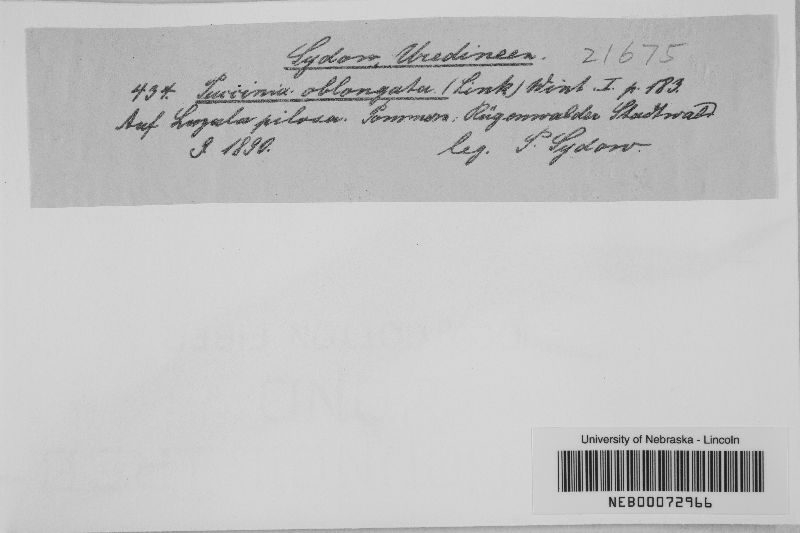 Sydow, Uredineen. 21675
434. Puccinia oblongata (Link) Wint. I. p. 183.
Auf Luzula pilosa. Pommern: Rügenwalder Stadtwald
9 1890. leg. P. Sydow.
University of Nebraska - Lincoln
NEB00072966